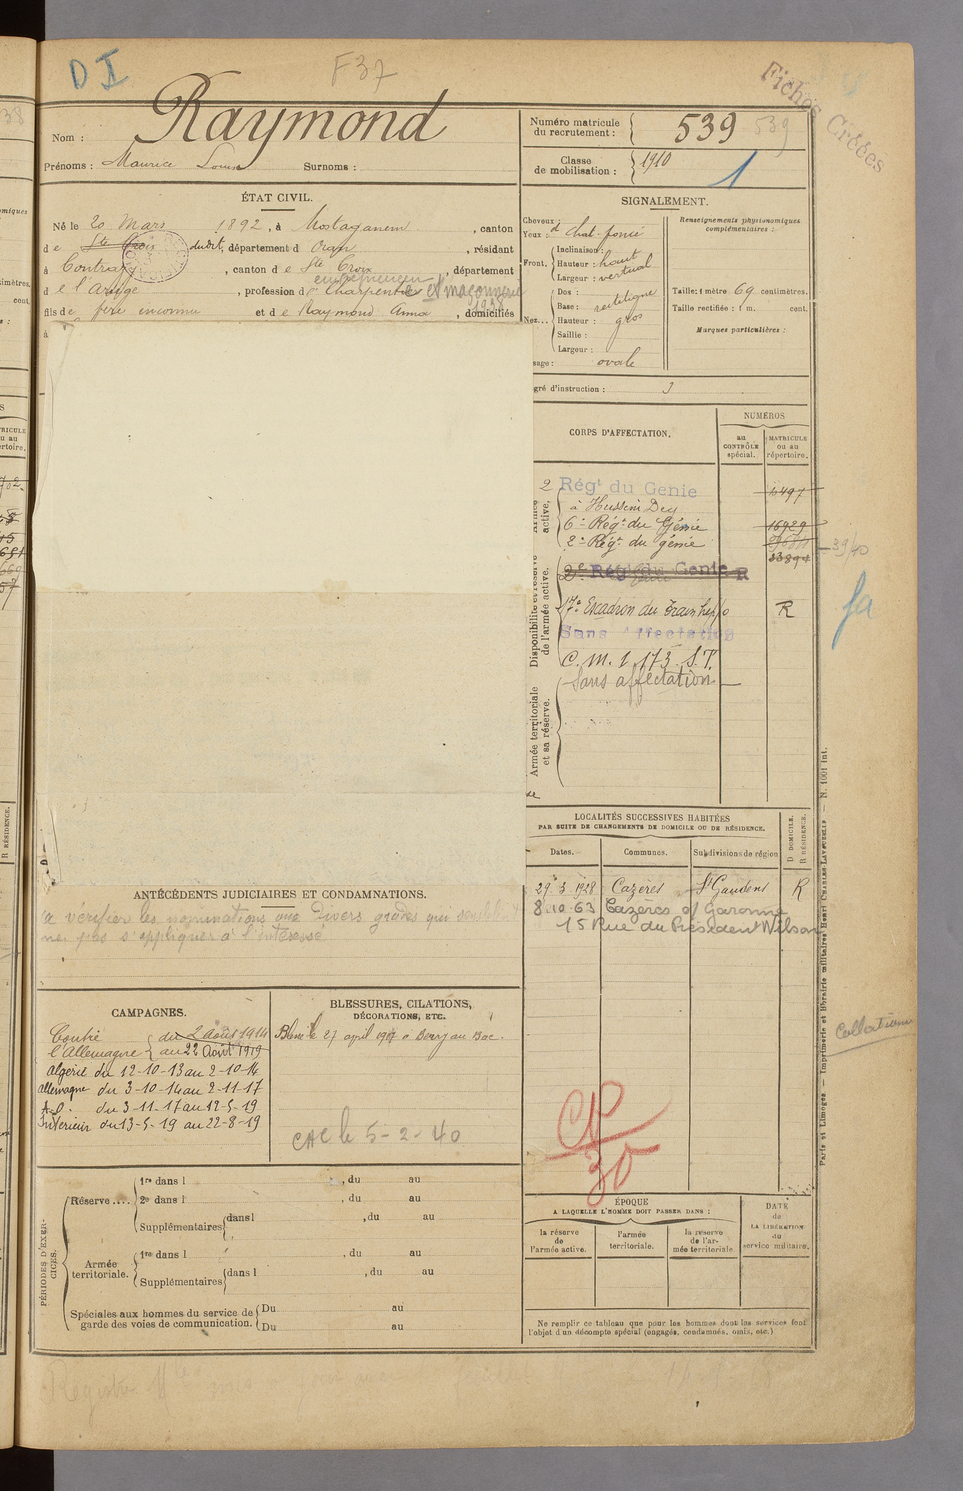 D I
F37
Fiches Créées
Nom : Raymond
Prénoms : Maurice Louis Surnoms :
Numéro matricule du recrutement : 539 539
Classe de mobilisation : 1910
1
ÉTAT CIVIL.
Né le 20 Mars 1892, à Mostaganem, canton
d e Ste Croix dudit, département d Oran, résidant
à Contrazy, canton d e Ste Croix, département
entrepreneur
d e l'Ariège, profession d Charpentier et maçonnerie
1938
fils de père inconnu et d e Raymond Anna, domiciliés
à
SIGNALEMENT.
Cheveux : d
Yeux : chat. foncé
Front. Inclinaison :
Hauteur : haut
Largeur : vertical
Nez... Dos :
Base : rectiligne
Hauteur : gros
Saillie :
Largeur :
sage : ovale
Renseignements physionomiques complémentaires :
Taille : 1 mètre 69 centimètres.
Taille rectifiée : 1 m. cent.
Marques particulières :
gré d'instruction : 3
CORPS D'AFFECTATION.
NUMÉROS
au CONTRÔLE spécial.
MATRICULE ou au répertoire.
active,
2 Régt du Génie
à Hussein Dey
6e Régt du Génie 16929
2e Régt du génie
33894
39/40
Disponibilité et réserve de l'armée active.
2e Régt du Génie R
17e Escadron du Train hippo R
Sans Affectation
fa
C. M. 1 173 S.T.
Sans affectation
Armée territoriale et sa réserve.
LOCALITÉS SUCCESSIVES HABITÉES
PAR SUITE DE CHANGEMENTS DE DOMICILE OU DE RÉSIDENCE.
Dates. Communes. Subdivisions de région
D DOMICILE. R RÉSIDENCE.
29. 3. 1928 Cazères St Gaudens R
8.10.63 Cazères s/ Garonne
15 Rue du Président Wilson
ANTÉCÉDENTS JUDICIAIRES ET CONDAMNATIONS.
a vérifier les nominations aux divers grades qui semblent
ne pas s'appliquer à l'intéressé
CAMPAGNES.
Contre du 2 août 1914
l'Allemagne au 22 Août 1919
Algérie du 12-10-13 au 2-10-14
Allemagne du 3-10-14 au 2-11-17
du 3-11-17 au 12-5-19
Intérieur du 13-5-19 au 22-8-19
BLESSURES, CITATIONS,
DÉCORATIONS, ETC.
Blessé le 27 avril 1917 à Berry au Bac.
CAC le 5-2-40
Collationné
30
PÉRIODES D'EXERCICES.
Réserve....
1re dans l , du au
2e dans l , du au
Supplémentaires dans l , du au
Armée territoriale.
1re dans l , du au
Supplémentaires dans l , du au
Spéciales aux hommes du service de garde des voies de communication.
Du au
Du au
ÉPOQUE
A LAQUELLE L'HOMME DOIT PASSER DANS :
la réserve de l'armée active.
l'armée territoriale.
la réserve de l'armée territoriale.
DATE de LA LIBÉRATION du service militaire.
Ne remplir ce tableau que pour les hommes dont les services font
l'objet d'un décompte spécial (engagés, condamnés, omis, etc.)
Paris et Limoges. — Imprimerie et librairie militaires Henri CHARLES-LAVAUZELLE — N. 1001 int.